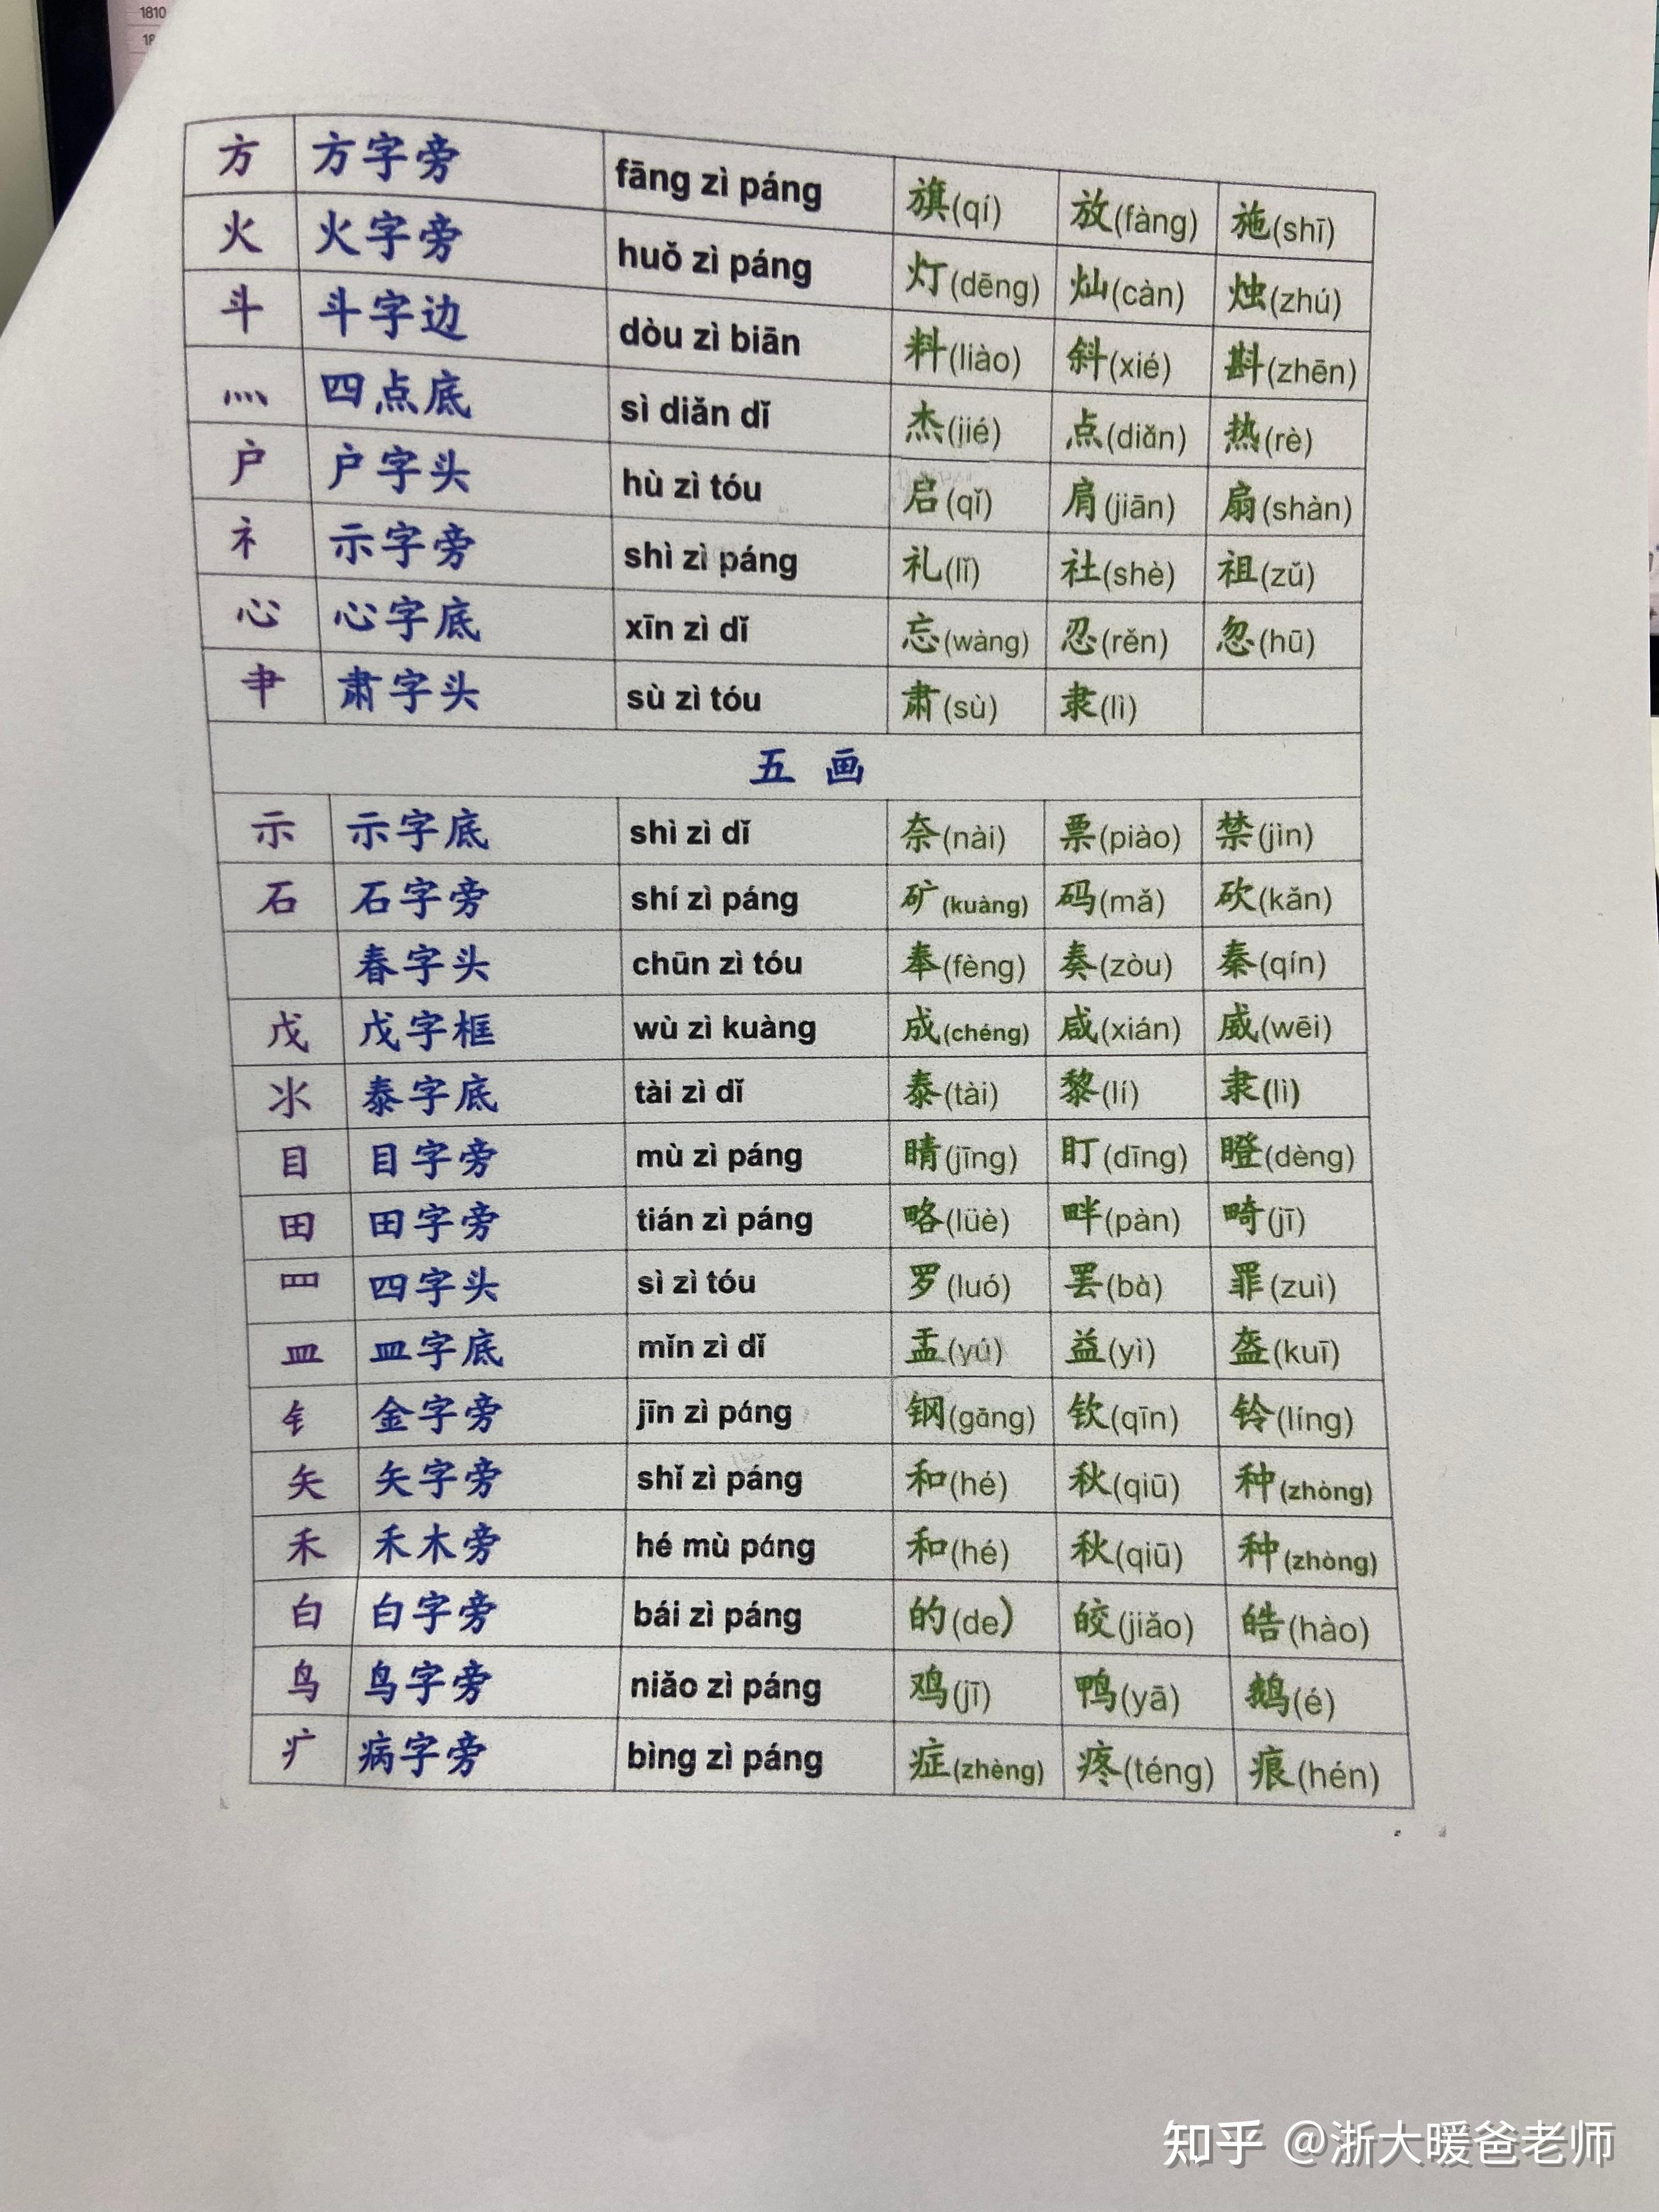 1810
方 方字旁 fāng zì páng 旗(qí) 放(fàng) 施(shī)
火 火字旁 huǒ zì páng 灯(dēng) 灿(càn) 烛(zhú)
斗 斗字边 dòu zì biān 料(liào) 斜(xié) 斟(zhēn)
灬 四点底 sì diǎn dǐ 杰(jié) 点(diǎn) 热(rè)
户 户字头 hù zì tóu 启(qǐ) 肩(jiān) 扇(shàn)
礻 示字旁 shì zì páng 礼(lǐ) 社(shè) 祖(zǔ)
心 心字底 xīn zì dǐ 忘(wàng) 忍(rěn) 忽(hū)
肀 肃字头 sù zì tóu 肃(sù) 隶(lì)
五 画
示 示字底 shì zì dǐ 奈(nài) 票(piào) 禁(jìn)
石 石字旁 shí zì páng 矿(kuàng) 码(mǎ) 砍(kǎn)
春字头 chūn zì tóu 奉(fèng) 奏(zòu) 秦(qín)
戊 戊字框 wù zì kuàng 成(chéng) 咸(xián) 威(wēi)
氺 泰字底 tài zì dǐ 泰(tài) 黎(lí) 隶(lì)
目 目字旁 mù zì páng 睛(jīng) 盯(dīng) 瞪(dèng)
田 田字旁 tián zì páng 略(lüè) 畔(pàn) 畸(jī)
罒 四字头 sì zì tóu 罗(luó) 罢(bà) 罪(zuì)
皿 皿字底 mǐn zì dǐ 盂(yú) 益(yì) 盔(kuī)
钅 金字旁 jīn zì páng 钢(gāng) 钦(qīn) 铃(líng)
矢 矢字旁 shǐ zì páng 和(hé) 秋(qiū) 种(zhòng)
禾 禾木旁 hé mù páng 和(hé) 秋(qiū) 种(zhòng)
白 白字旁 bái zì páng 的(de) 皎(jiǎo) 皓(hào)
鸟 鸟字旁 niǎo zì páng 鸡(jī) 鸭(yā) 鹅(é)
疒 病字旁 bìng zì páng 症(zhèng) 疼(téng) 痕(hén)
知乎 @浙大暖爸老师